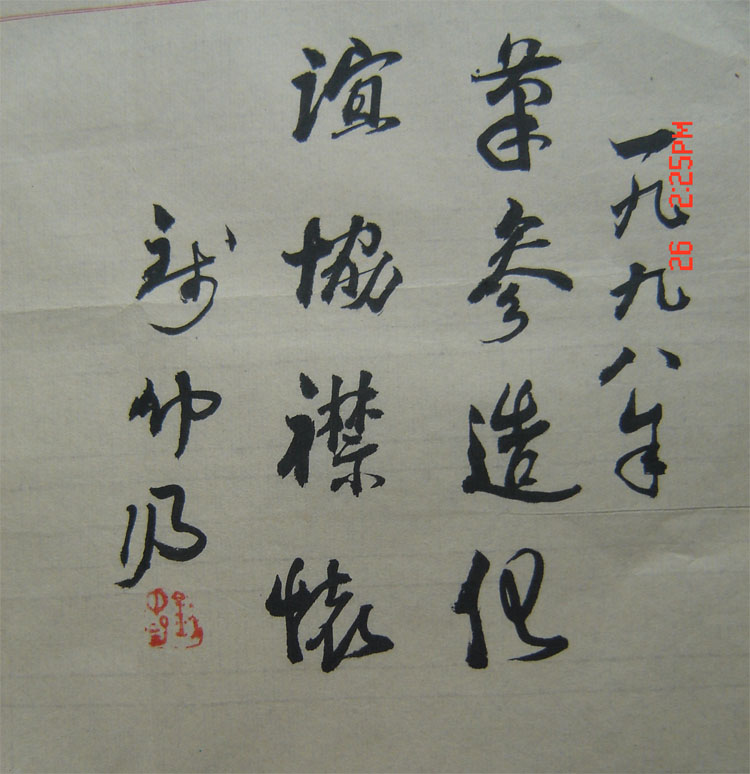 一九九八年
筆參造化
誼協襟懷
錢仲聯
26 2:25PM